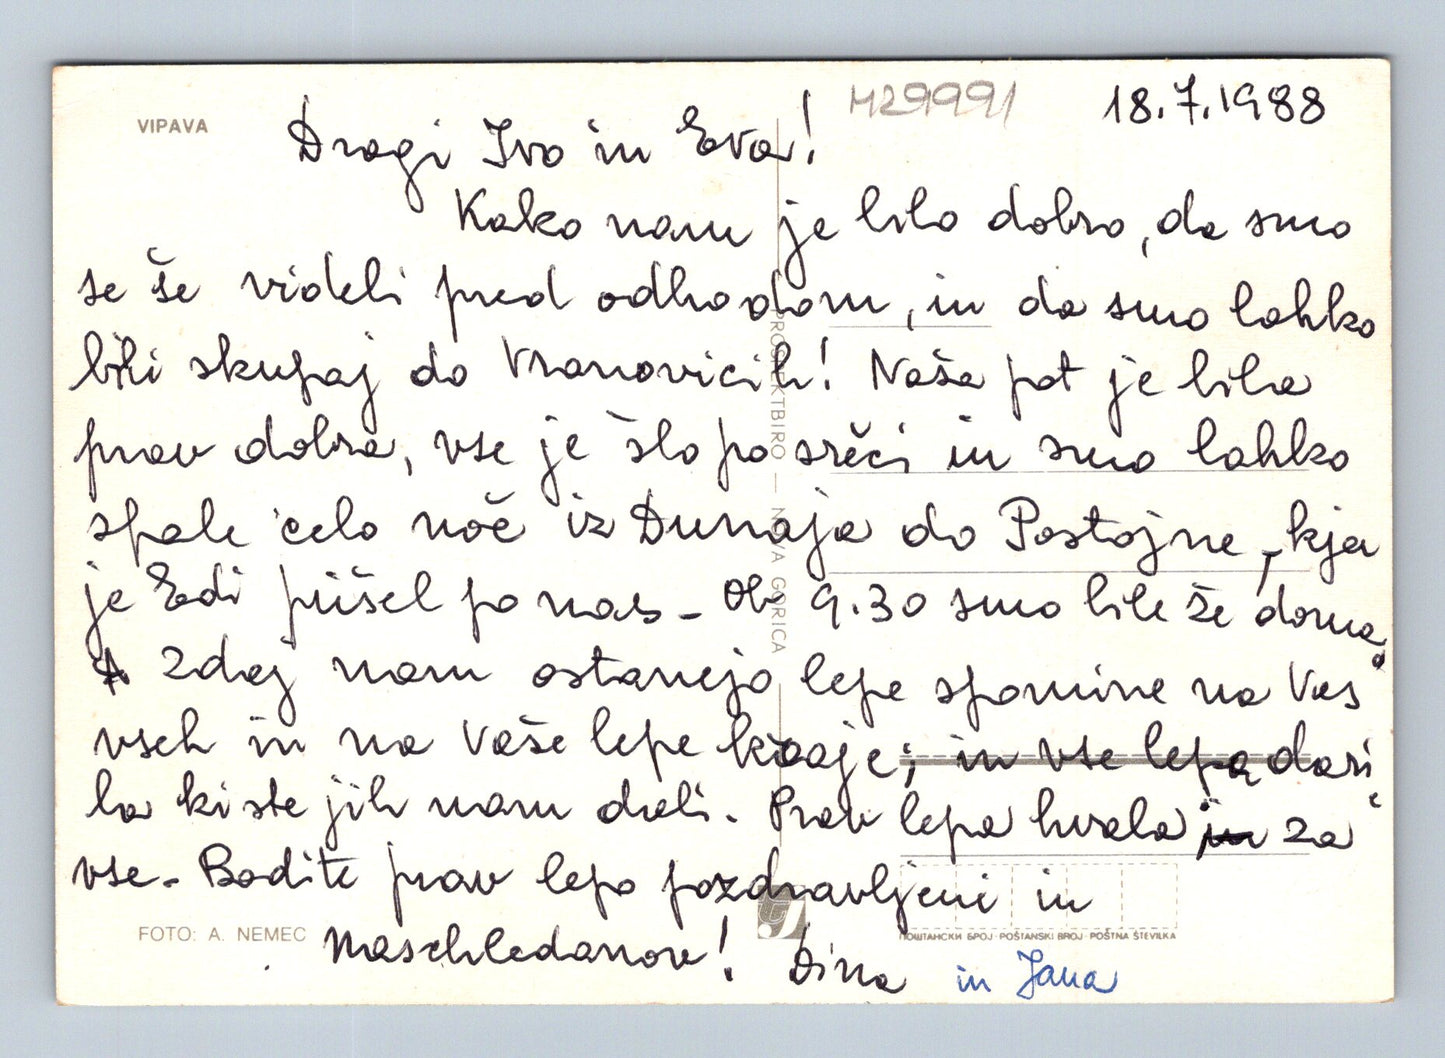 VIPAVA
M29991
18.7.1988
Dragi Ivo in Eva!
Kako nam je bilo dobro, da smo
se še videli pred odhodom, in da smo lahko
bili skupaj do Vranovicih! Naša pot je bila
prav dobra, vse je šlo po sreči in smo lahko
spale celo noč iz Dunaja do Postojne, kja
je Edi prišel po nas - Ob 9.30 smo bile že doma.
A zdaj nam ostanejo lepe spomine na Vas
vseh in na Vaše lepe kraaje; in vse lepa dari
la ki ste jih nam dali. Prav lepa hvala za
vse - Bodite prav lepo pozdravljeni in
Naschledanov! Dina in Jana
PROJEKTBIRO — NOVA GORICA
FOTO: A. NEMEC
ПОШТАНСКИ БРОЈ - POŠTANSKI BROJ - POŠTNA ŠTEVILKA